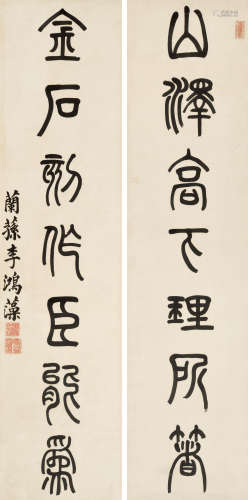 山澤高下理所著
金石刻作臣能為
蘭蓀李鴻藻